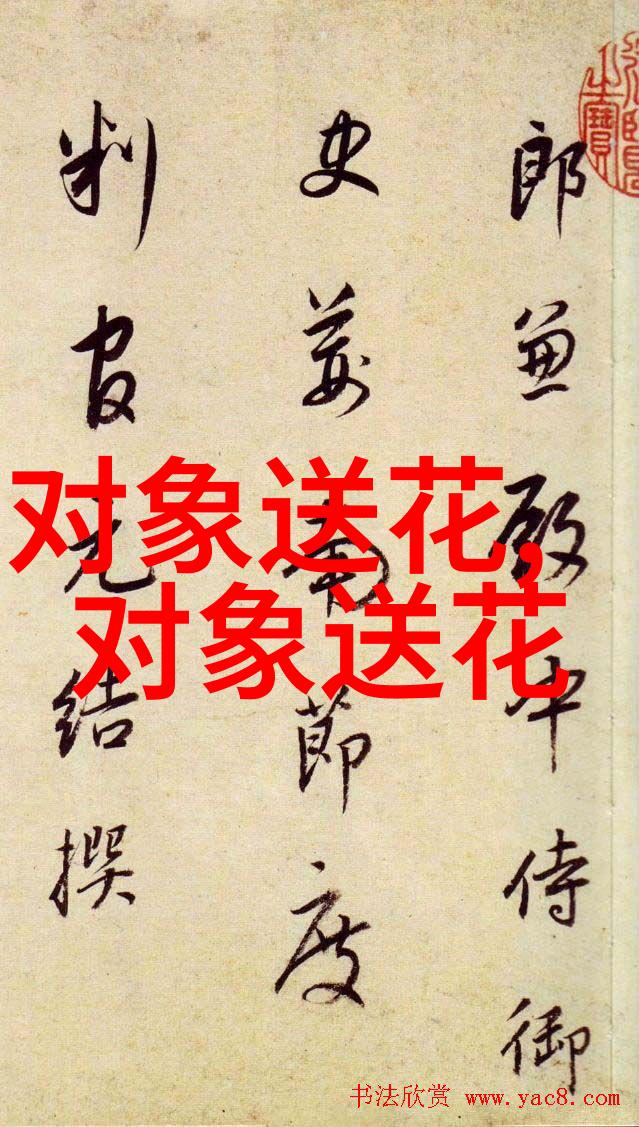 郎兼殿中侍御
史荊南節度
判官元結撰
对象送花,
对象送花
书法欣赏 www.yac8.com